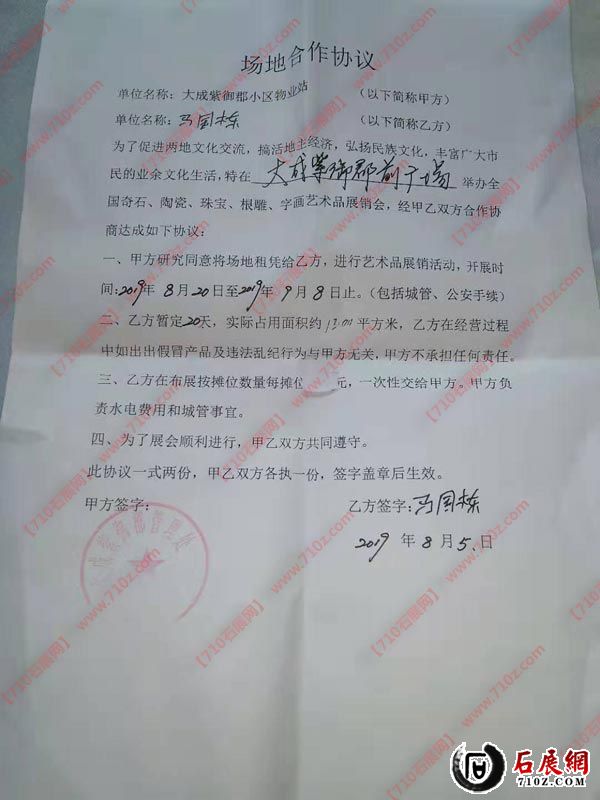 场地合作协议
单位名称：大成紫御郡小区物业站 （以下简称甲方）
单位名称：马国栋 （以下简称乙方）
为了促进两地文化交流，搞活地主经济，弘扬民族文化，丰富广大市
民的业余文化生活，特在 大成紫御郡前广场 举办全
国奇石、陶瓷、珠宝、根雕、字画艺术品展销会，经甲乙双方合作协
商达成如下协议：
一、甲方研究同意将场地租凭给乙方，进行艺术品展销活动，开展时
间：2019年 8月20日至2019年 9月8日止。（包括城管、公安手续）
二、乙方暂定20天，实际占用面积约 平方米，乙方在经营过程
中如出出假冒产品及违法乱纪行为与甲方无关，甲方不承担任何责任。
三、乙方在布展按摊位数量每摊位 元，一次性交给甲方。甲方负
责水电费用和城管事宜。
四、为了展会顺利进行，甲乙双方共同遵守。
此协议一式两份，甲乙双方各执一份，签字盖章后生效。
甲方签字： 乙方签字：马国栋
紫御郡管理处
2019 年 8 月 5 日
【710石展网】 www.710z.com
石展網
710Z.COM